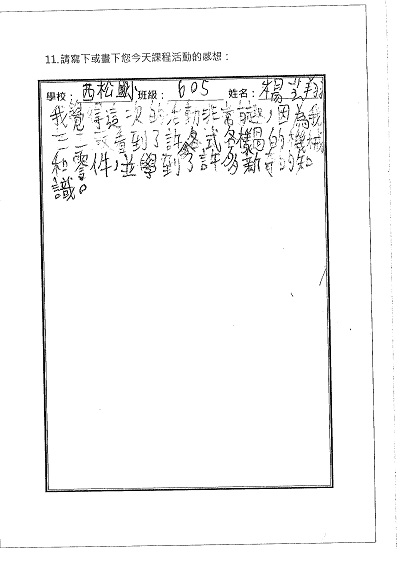 11.請寫下或畫下您今天課程活動的感想：
學校：西松國小 班級：605 姓名：楊
我覺得這次的活動非常有趣，因為我
看到了許多各式各樣的機械
和零件，並學到了許多新的知
識。